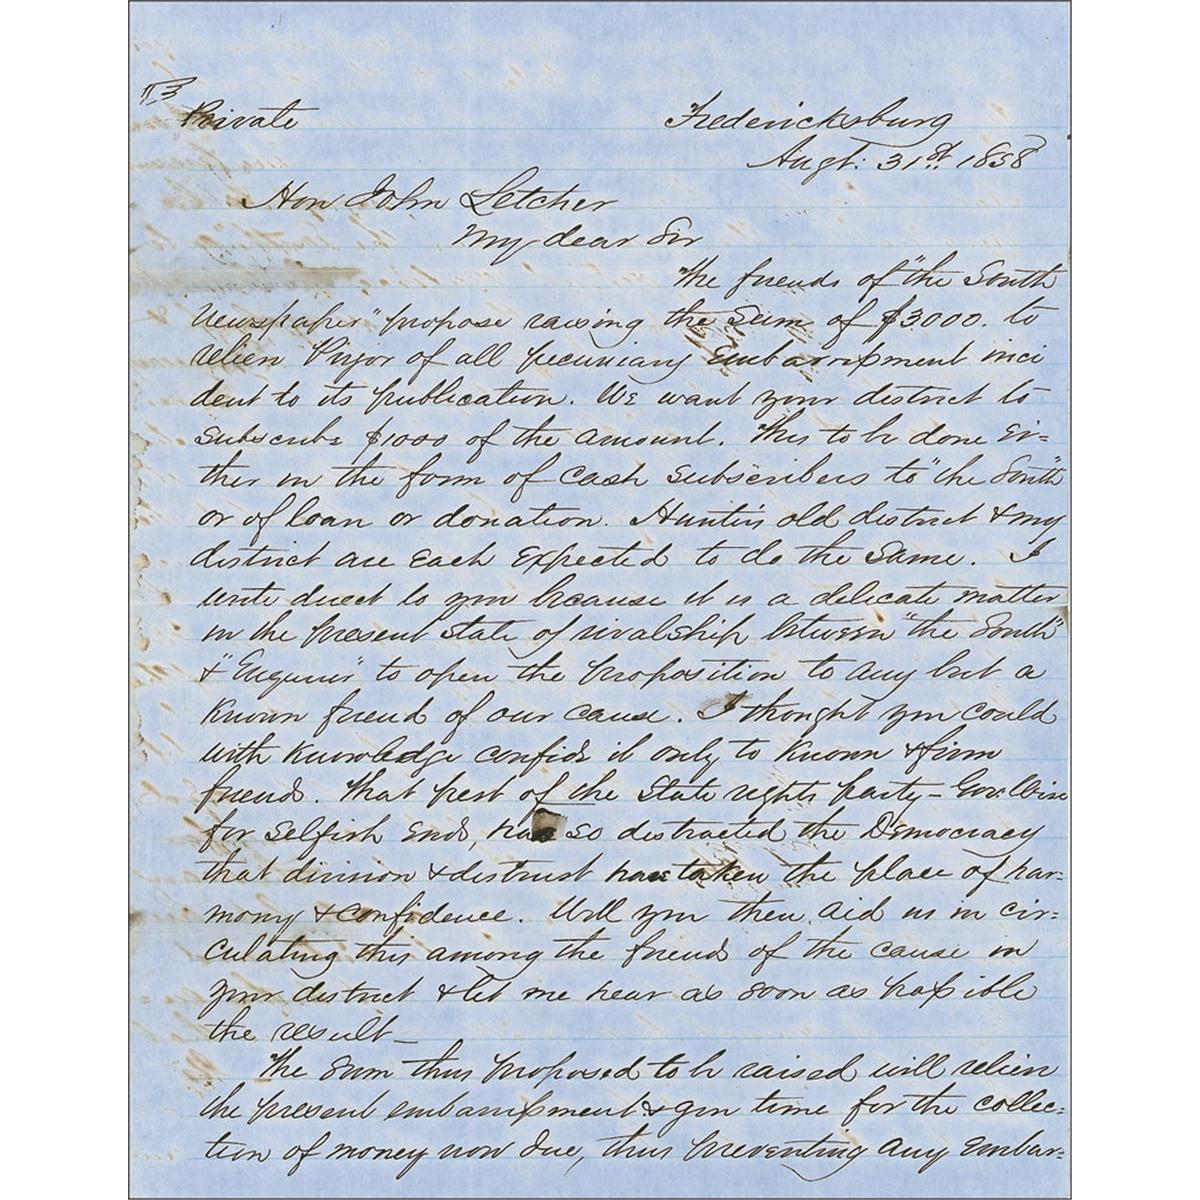 Private
Fredericksburg
Augt: 31st. 1858
Hon John Letcher
My dear Sir
The friends of "the South
Newspaper" propose raising the Sum of $3000. to
relieve Pryor of all pecuniary Embarrassment inci
dent to its publication. We want your district to
Subscribe $1000 of the amount. This to be done Ei=
ther in the form of Cash Subscribers to "the South"
or of loan or donation. Hunter's old district & my
district are each Expected to do the Same. I
write direct to you because it is a delicate matter
in the present State of rivalship between "the South"
& "Enquirer" to open the proposition to any but a
Known friend of our cause. I thought you could
with Knowledge confide it only to Known & firm
friends. That pest of the State rights party - Gov. Wise
for Selfish Ends, has So distracted the Democracy
that division & distrust have taken the place of har=
mony & confidence. Will you then aid us in cir=
culating this among the friends of the cause in
your district & let me hear as Soon as possible
the result_
The Sum thus proposed to be raised will relieve
the present embarrassment & give time for the collec=
tion of money now due, thus preventing any Embar=